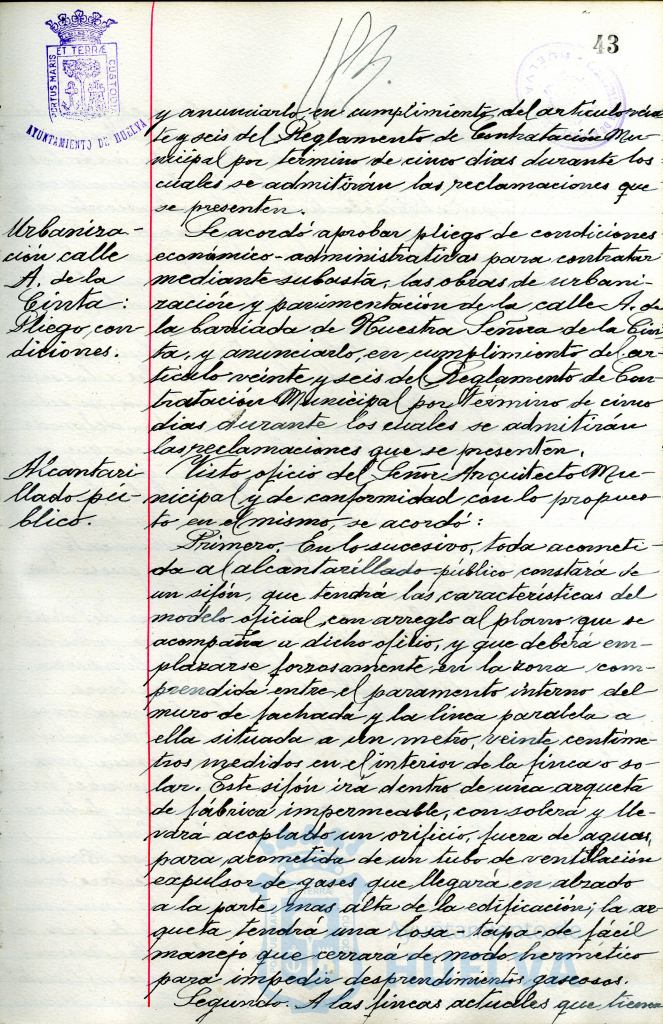 43
PORTUS MARIS ET TERRÆ CUSTODIA
AYUNTAMIENTO DE HUELVA
y anunciarlo en cumplimiento del artículo vein-
te y seis del Reglamento de Contratación Mu-
nicipal por término de cinco días durante los
cuales se admitirán las reclamaciones que
se presenten.
Urbaniza-
ción calle
A. de la
Cinta:
Pliego con-
diciones.
Se acordó aprobar pliego de condiciones
económico-administrativas para contratar
mediante subasta, las obras de urbani-
zación y pavimentación de la calle A. de
la barriada de Nuestra Señora de la Cin-
ta, y anunciarlo, en cumplimiento del ar-
tículo veinte y seis del Reglamento de Con-
tratación Municipal por término de cinco
días durante los cuales se admitirán
las reclamaciones que se presenten.
Alcantari-
llado pú-
blico.
Visto oficio del Señor Arquitecto Mu-
nicipal y de conformidad con lo propues-
to en el mismo, se acordó:
Primero. En lo sucesivo, toda acometi-
da al alcantarillado público constará de
un sifón, que tendrá las características del
modelo oficial, con arreglo al plano que se
acompaña a dicho oficio, y que deberá em-
plazarse forzosamente en la zona com-
prendida entre el paramento interno del
muro de fachada y la línea paralela a
ella situada a un metro, veinte centíme-
tros medidos en el interior de la finca o so-
lar. Este sifón irá dentro de una arqueta
de fábrica impermeable, con solera y lle-
vará acoplado un orificio, fuera de aguas,
para acometida de un tubo de ventilación
expulsor de gases que llegará en alzado
a la parte mas alta de la edificación; la ar-
queta tendrá una losa-tapa de fácil
manejo que cerrará de modo hermético
para impedir desprendimientos gaseosos.
Segundo. A las fincas actuales que tienen
HUELVA